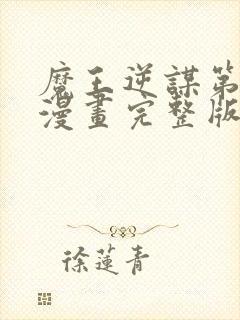 魔王逆謀第
漫畫完整版
徐蓮青